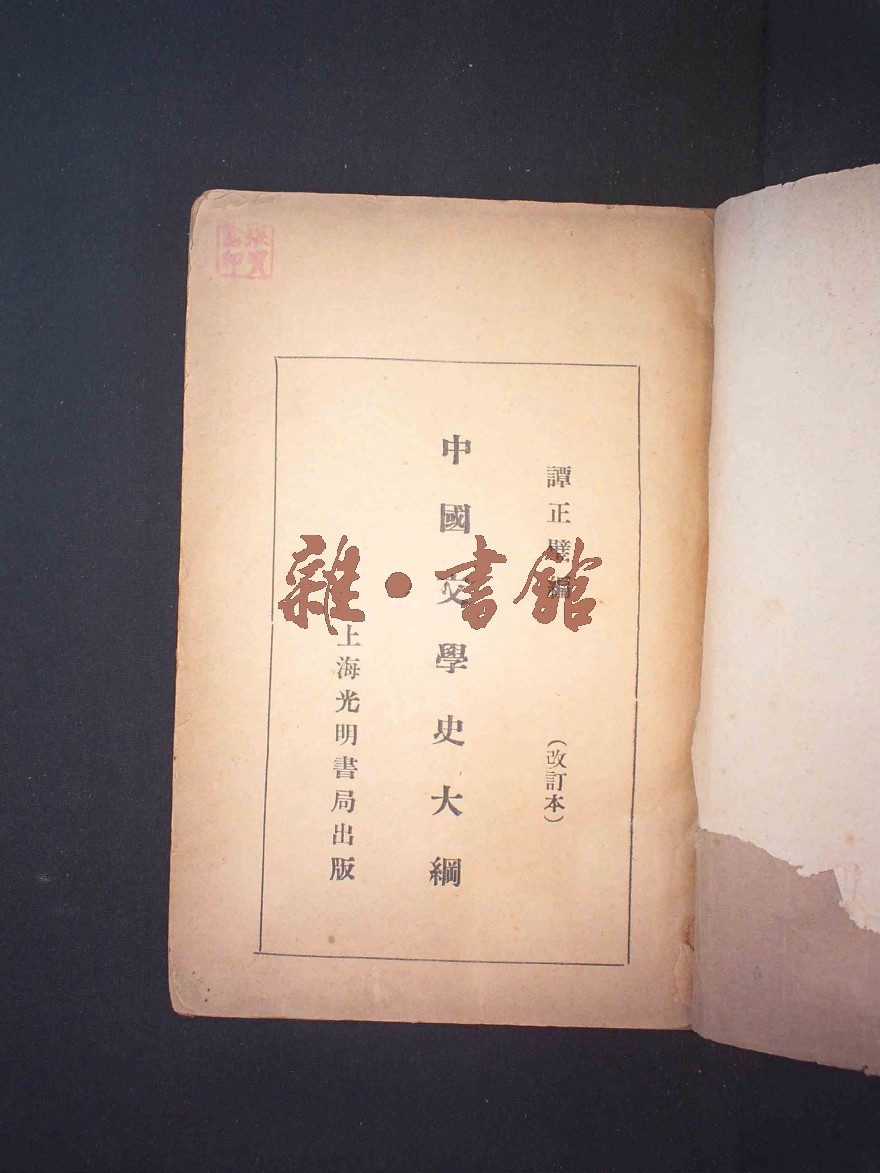 譚正璧編
(改訂本)
中國文學史大綱
上海光明書局出版
雜·書館